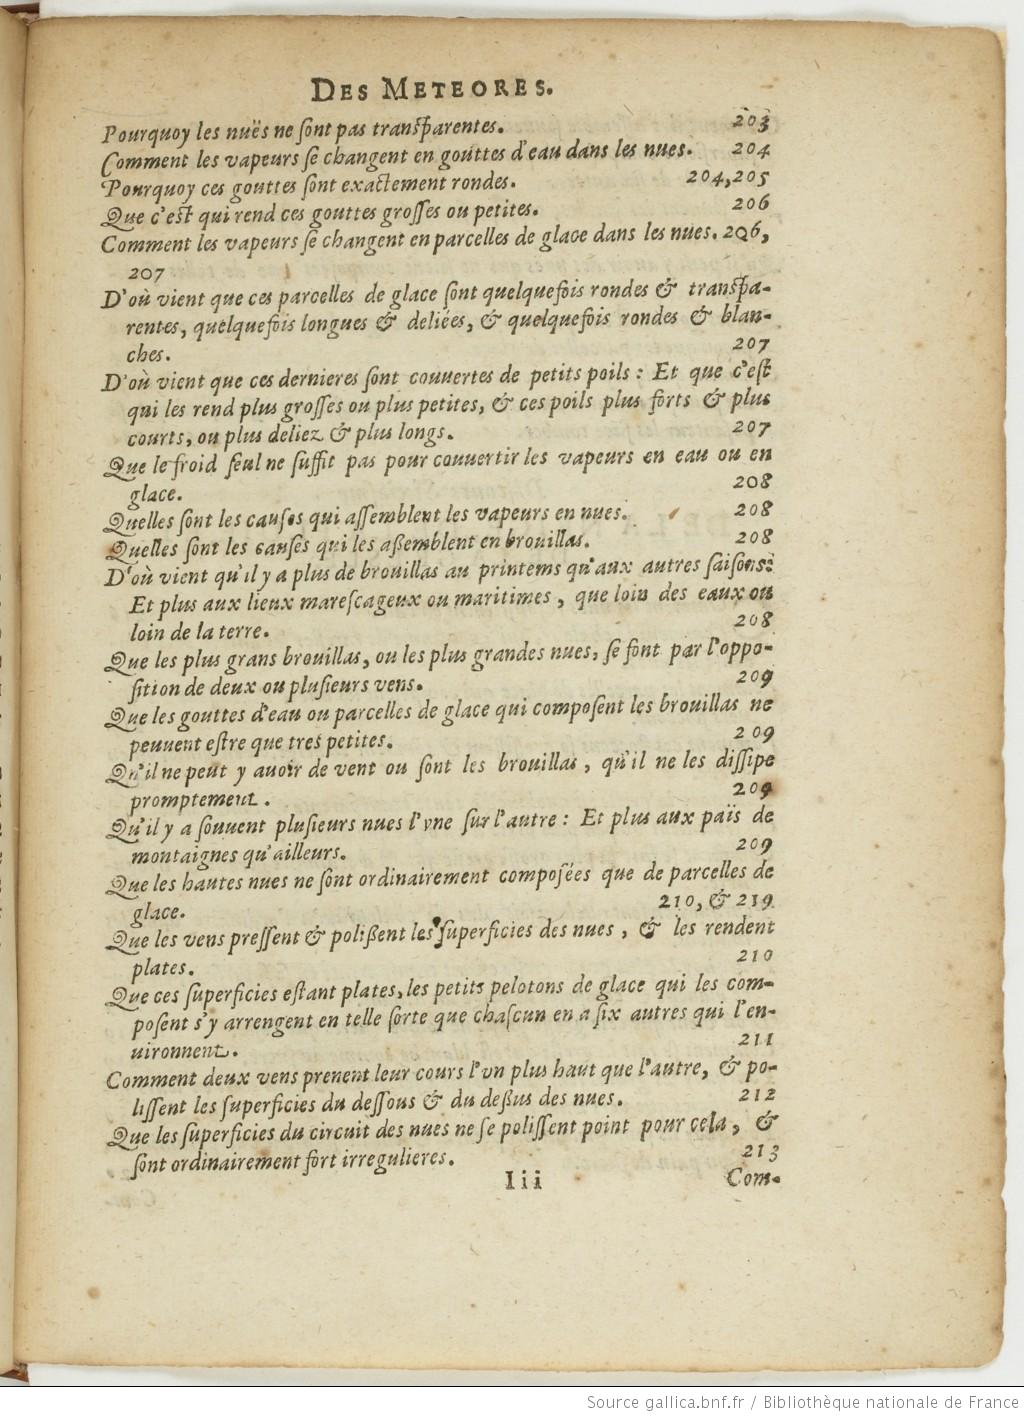 DES METEORES.
Pourquoy les nuës ne sont pas transparentes. 203
Comment les vapeurs se changent en gouttes d'eau dans les nues. 204
Pourquoy ces gouttes sont exactement rondes. 204,205
Que c'est qui rend ces gouttes grosses ou petites. 206
Comment les vapeurs se changent en parcelles de glace dans les nues. 206,
207
D'où vient que ces parcelles de glace sont quelquefois rondes & transpa-
rentes, quelquefois longues & deliées, & quelquefois rondes & blan-
ches. 207
D'où vient que ces dernieres sont couuertes de petits poils : Et que c'est
qui les rend plus grosses ou plus petites, & ces poils plus forts & plus
courts, ou plus deliez & plus longs. 207
Que le froid seul ne suffit pas pour conuertir les vapeurs en eau ou en
glace. 208
Quelles sont les causes qui assemblent les vapeurs en nues. 208
Quelles sont les causes qui les aßemblent en brouillas. 208
D'où vient qu'il y a plus de brouillas au printems qu'aux autres saisons:
Et plus aux lieux marescageux ou maritimes, que loin des eaux ou
loin de la terre. 208
Que les plus grans brouillas, ou les plus grandes nues, se font par l'oppo-
sition de deux ou plusieurs vens. 209
Que les gouttes d'eau ou parcelles de glace qui composent les brouillas ne
peuuent estre que tres petites. 209
Qu'il ne peut y auoir de vent ou sont les brouillas, qu'il ne les dissipe
promptement. 209
Qu'il y a souuent plusieurs nues l'vne sur l'autre : Et plus aux païs de
montaignes qu'ailleurs. 209
Que les hautes nues ne sont ordinairement composées que de parcelles de
glace. 210, & 219
Que les vens pressent & polißent les superficies des nues, & les rendent
plates. 210
Que ces superficies estant plates, les petits pelotons de glace qui les com-
posent s'y arrengent en telle sorte que chascun en a six autres qui l'en-
uironnent. 211
Comment deux vens prenent leur cours l'vn plus haut que l'autre, & po-
lissent les superficies du dessous & du deßus des nues. 212
Que les superficies du circuit des nues ne se polissent point pour cela, &
sont ordinairement fort irregulieres. 213
Iii Com-
Source gallica.bnf.fr / Bibliothèque nationale de France